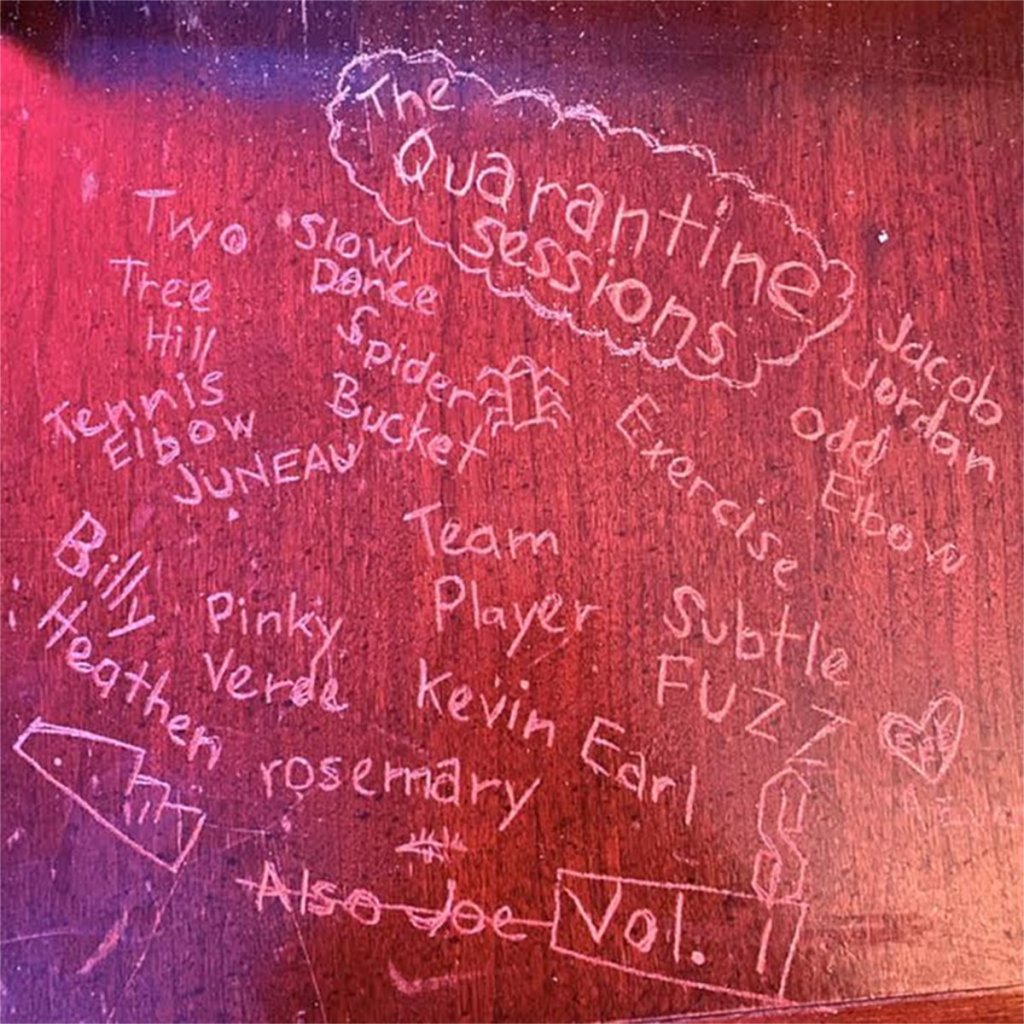 The
Quarantine
Sessions
Two
Tree
Hill
Slow
Dance
Spider
Bucket
Tennis
Elbow
JUNEAU
Exercise
Jacob
Jordan
Odd
Elbow
Team
Player
Billy
Heathen
Pinky
Verde
Kevin Earl
Subtle
FUZZ
rosemary
Also Joe
Vol. 1